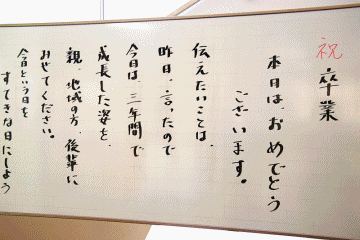 祝 卒業
本日は、おめでとう
ございます。
伝えたいことは、
昨日、言ったので
今日は、三年間で
成長した姿を、
親、地域の方、後輩に
みせてください。
今日という日を
すてきな日にしよう